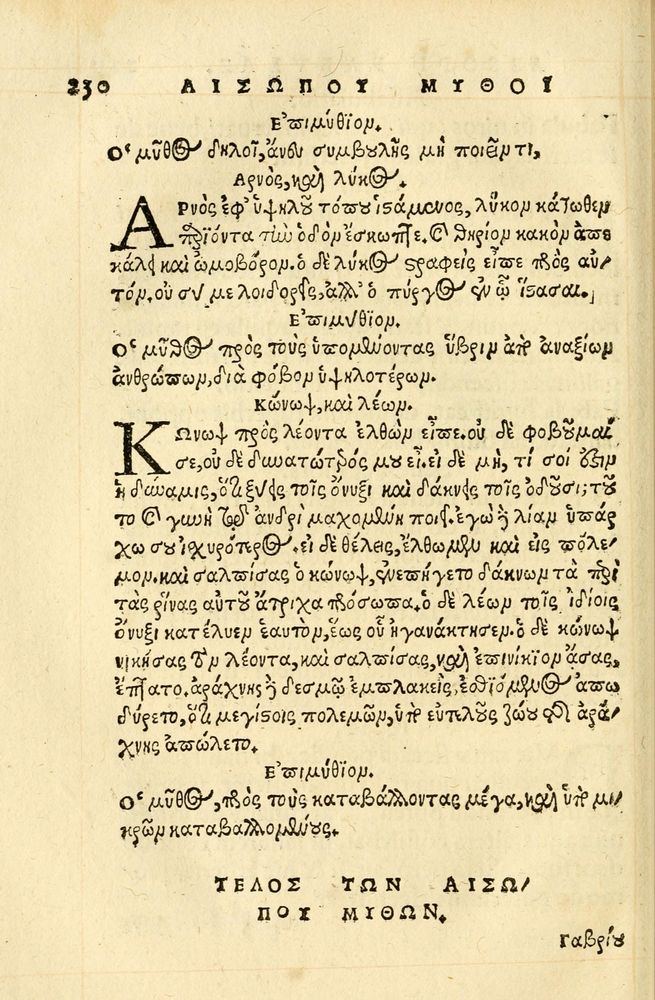 230 ΑΙΣΩΠΟΥ ΜΥΘΟΙ
Επιμύθιον.
Ο῾ μῦθος δηλοῖ, ἄνευ συμβουλῆς μὴ ποιεῖν τι,
Αρνὸς, καὶ λύκος.
ΑΡνὸς ἐφ' ὑψηλοῦ τόπου ἱστάμενος, λύκον κάτωθεν
προϊόντα τὴν ὁδὸν ἔσκωπτε. καὶ θηρίον κακὸν ἀπε
κάλει καὶ ὠμοβόρον. ὁ δὲ λύκος στραφεὶς εἶπε πρὸς αὐ-
τόν. οὐ σὺ με λοιδορεῖς, ἀλλ' ὁ πύργος ἐν ᾧ ἵστασαι.
Επιμύθιον.
Ο῾ μῦθος πρὸς τοὺς ὑπομένοντας ὕβριν ἀπὸ ἀναξίων
ἀνθρώπων, διὰ φόβον ὑψηλοτέρων.
Κώνωψ, καὶ λέων.
ΚΩνωψ πρὸς λέοντα ἐλθὼν εἶπε. οὐ δὲ φοβοῦμαί
σε, οὐ δὲ δυνατώτερός μου εἶ. εἰ δὲ μὴ, τί σοί ἐστιν
ἡ δύναμις, ὅτι ξύεις τοῖς ὄνυξι καὶ δάκνεις τοῖς ὀδοῦσι; τοῦ
το καὶ γυνὴ τῷ ἀνδρὶ μαχομένη ποιεῖ. ἐγὼ δὲ λίαν ὑπάρ
χω σου ἰσχυρότερος. εἰ δὲ θέλεις, ἔλθωμεν καὶ εἰς πόλε-
μον. καὶ σαλπίσας ὁ κώνωψ, ἐνεπήγετο δάκνων τὰ περὶ
τὰς ῥῖνας αὐτοῦ ἄτριχα πρόσωπα. ὁ δὲ λέων τοῖς ἰδίοις
ὄνυξι κατέλυεν ἑαυτὸν, ἕως οὗ ἠγανάκτησεν. ὁ δὲ κώνωψ
νικήσας τὸν λέοντα, καὶ σαλπίσας, καὶ ἐπινίκιον ᾄσας,
ἔπτατο. ἀράχνης δὲ δεσμῷ ἐμπλακεὶς, ἐσθιόμενος ἀπω
δύρετο, ὅτι μεγίστοις πολεμῶν, ὑπὸ εὐτελοῦς ζώου τῆς ἀρά-
χνης ἀπώλετο.
Επιμύθιον.
Ο῾ μῦθος, πρὸς τοὺς καταβάλλοντας μέγα, καὶ ὑπὸ μι-
κρῶν καταβαλλομένους.
ΤΕΛΟΣ ΤΩΝ ΑΙΣΩ-
ΠΟΥ ΜΙΘΩΝ.
Γαβρίου